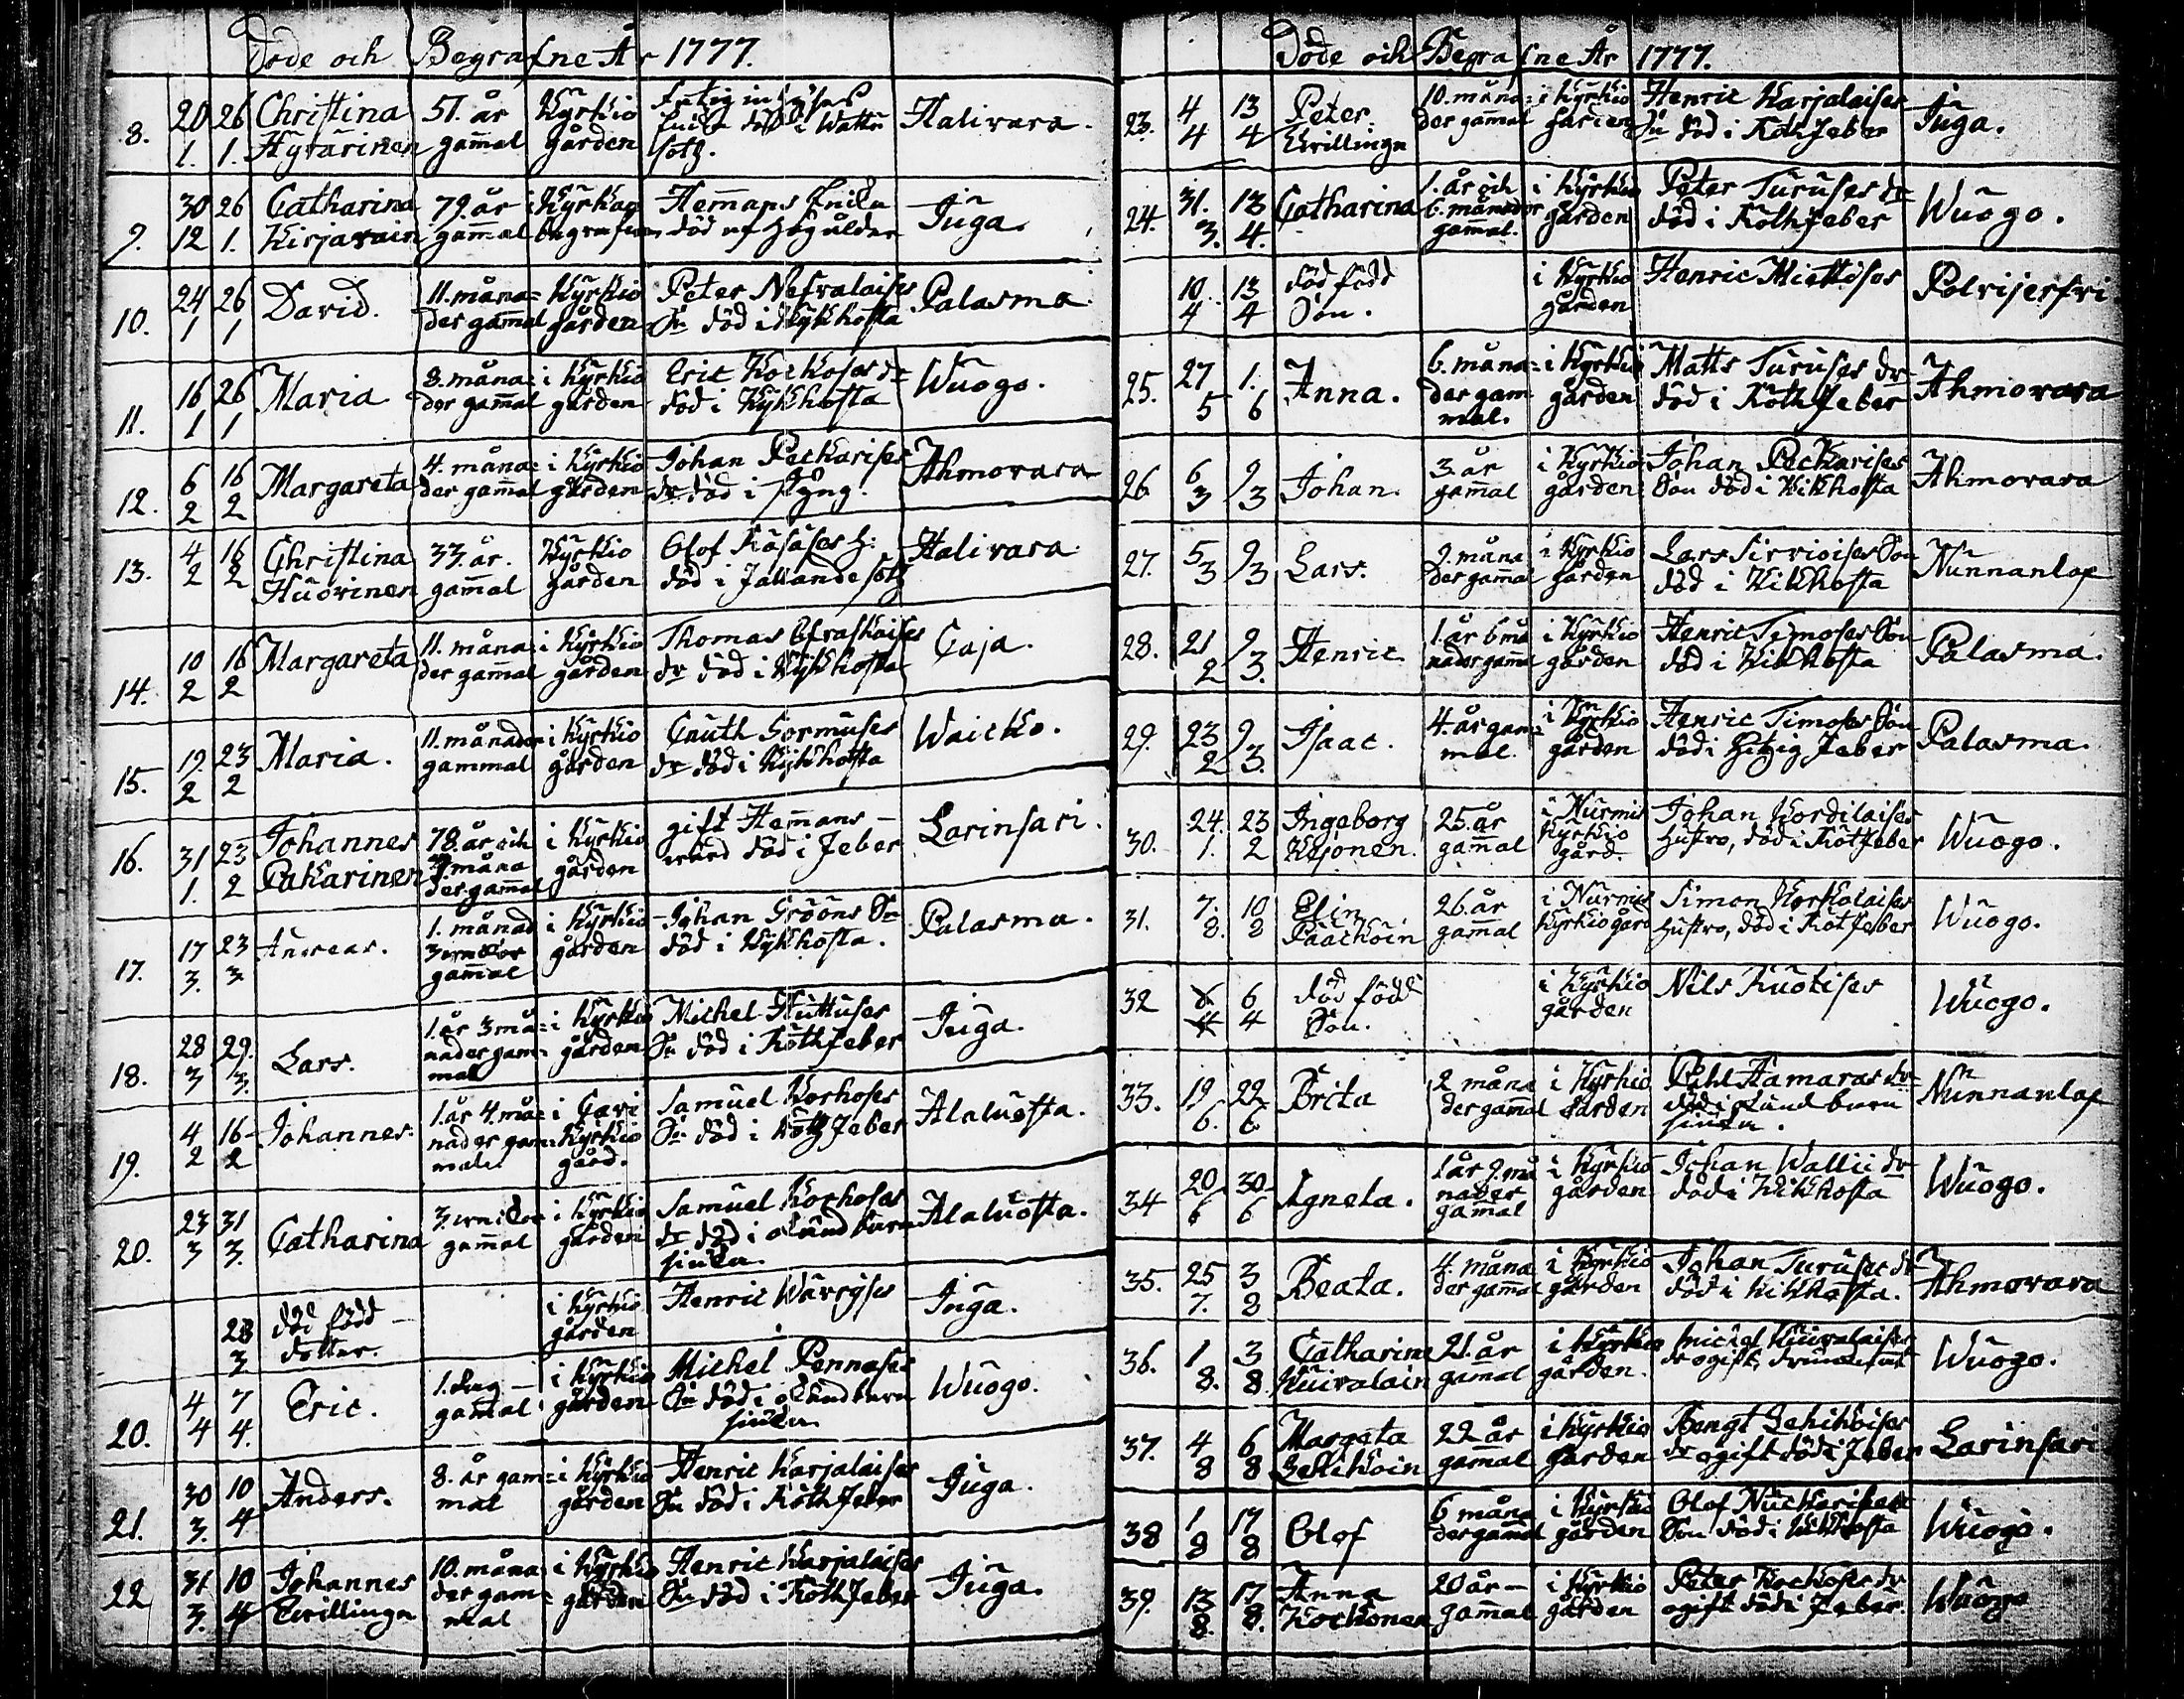 Döde och Begrafne År 1777.
8. 20/1. 26/1. Christina Hyvärinen 51. år gam̄al Kyrkio gården Enka död i Wattu sotg. Halivara.
9. 30/12 26/1. Catharina Kirjavain 79. år gam̄al i Kyrkan begrafven Hem̄ans Enka död af hög ålder Juga.
10. 24/1 26/1 David. 11. måna= der gam̄al Kyrkio gården Peter Nefvalaises Sn död i Kykhosta Palasma.
11. 16/1 26/1 Maria 8. måna= der gam̄al i Kyrkio gården Eric Kockoses dr död i Kykhosta Wuogo.
12. 6/2 16/2 Margareta 4. måna= der gam̄al i Kyrkio gården Johan Peckarises dr död i Ahmovara
13. 4/2 16/2 Christina Huovinen 33. år. gam̄al Kyrkio gården Olof h: död i fallande sotg Halivara
14. 10/2 16/2 Margareta 11. måna= der gam̄al i Kyrkio gården Thomas dr död i Kykhosta Caja.
15. 19./2 23/2 Maria. 11. månader gammal i Kyrkio gården Cnuth Gormuses dr död i Kykhosta Waicko.
16. 31/1. 23/2 Johannes Pakarinen 78. år och måna der gam̄al i Kyrkio gården gift Hem̄ans – död i feber Larinsari.
17. 17/3. 23/3 Andreas. 1. månad 3 gam̄al i Kyrkio gården Johan Grööns Sn död i Kykhosta. Palasma.
18. 28/3 29./3. Lars. 1. år 3 må= nader gam= mal i Kyrkio gården Michel Huttuses Sn död i Röthfeber Juga.
19. 4/2 16/2 Johannes. 1. år 4. må= nader gam= mal i Cavi Kyrkio gård. Samuel Korhoses Sn död i Rötfeber Alaluosta.
20. 23/3 31/3. Catharina 3. gam̄al i Kyrkio gården Samuel Korhoses dr död i okiänd barn siuka. Alaluosta.
28/3 död född – dotter. i Kyrkio gården Henric Juga.
20. 4/4 7/4. Eric. 1. dag – gam̄al i Kyrkio gården Michel Pennases Sn död i okiänd barn siuka Wuogo.
21. 30/3. 10/4 Anders. 8. år gam= mal i Kyrkio gården Henric Karjalaises Sn död i Röthfeber Juga.
22 31/3. 10/4 Johannes Tvillingn 10. måna= der gam= mal i Kyrkio gården Henric Karjalaises Sn död i Röthfeber Juga.
Döde och Begrafne År 1777.
23. 4/4 13/4 Peter. Tvillingn 10. måna= der gam̄al i Kyrkio gården Henric Karjalaises Sn död i Röthfeber Juga.
24. 31./3. 13/4. Catharina 1. år och 6. månader gam̄al. i Kyrkio gården Peter Turuses dr död i Röthfeber Wuogo.
10./4 13/4 död född Son. i Kyrkio gården Henric Miettises Polvijerfvi
25. 27/5 1./6 Anna. 6. måna= der gam mal. i Kyrkio gården Matts Turuses dr död i Röthfeber Ahmovara
26 6/3 9/3 Johan. 3. år gam̄al i Kyrkio gården Johan Peckarises Son död i Kikhosta Ahmovara
27. 5/3 9/3 Lars. 2. måna der gam̄al i Kyrkio gården Lars Sirvioises Son död i Kikhosta Nunnanlax
28. 21/2 9/3. Henric 1. år 6 må nader gam̄al i Kyrkio gården Henric Timoses Son död i Kikhosta Palasma.
29. 23/2 9/3. Isaac. 4. år gam= mal. i Kyrkio gården Henric Timoses Son död i hitzig feber Palasma.
30. 24./1. 23/2 Ingeborg Kejonen. 25. år gam̄al i Nurmis Kyrkio gård. Johan Kordilaises hustro, död i Rötfeber Wuogo.
31. 7./8. 10/8 Elin Paackoin 26. år gam̄al i Nurmis Kyrkiogård Simon Korkolaises hustro, död i Rötfeber Wuogo.
32 6/4 död född Son. i Kyrkio gården Nils Kuotises Wuogo.
33. 19/6. 22/6 Brita 2 måna der gam̄al i Kyrkio gården Påhl Hamaras dr död i okiänd barn siuka. Nunnanlax
34 20/6 30/6 Agneta. 1 år 9. må nader gam̄al i Kyrkio gården Johan Wallii dr död i Kikhosta Wuogo.
35. 25/7. 3/8 Beata. 4. måna der gam̄al i Kyrkio gården Johan Turuses dr död i Kikhosta. Ahmovara
36. 1/8. 3/8 Catharina Kuivalain 21. år gam̄al i Kyrkio gården. Michel Kuivalaises dr ogift, Wuogo.
37. 4/8 6/8 Margeta Zekikoin 22 år gam̄al i Kyrkio gården Bengt Zekikoises dr ogift död i feber Larinsari
38 1/8 17/8 Olof 6 måna der gam̄al i Kyrkio gården Olof Son död i Kikhosta Wuogo.
39. 13/8. 17/8. Anna Kockonen 20 år – gam̄al i Kyrkio gården Peter Kockoses dr ogift död i feber. Wuogo